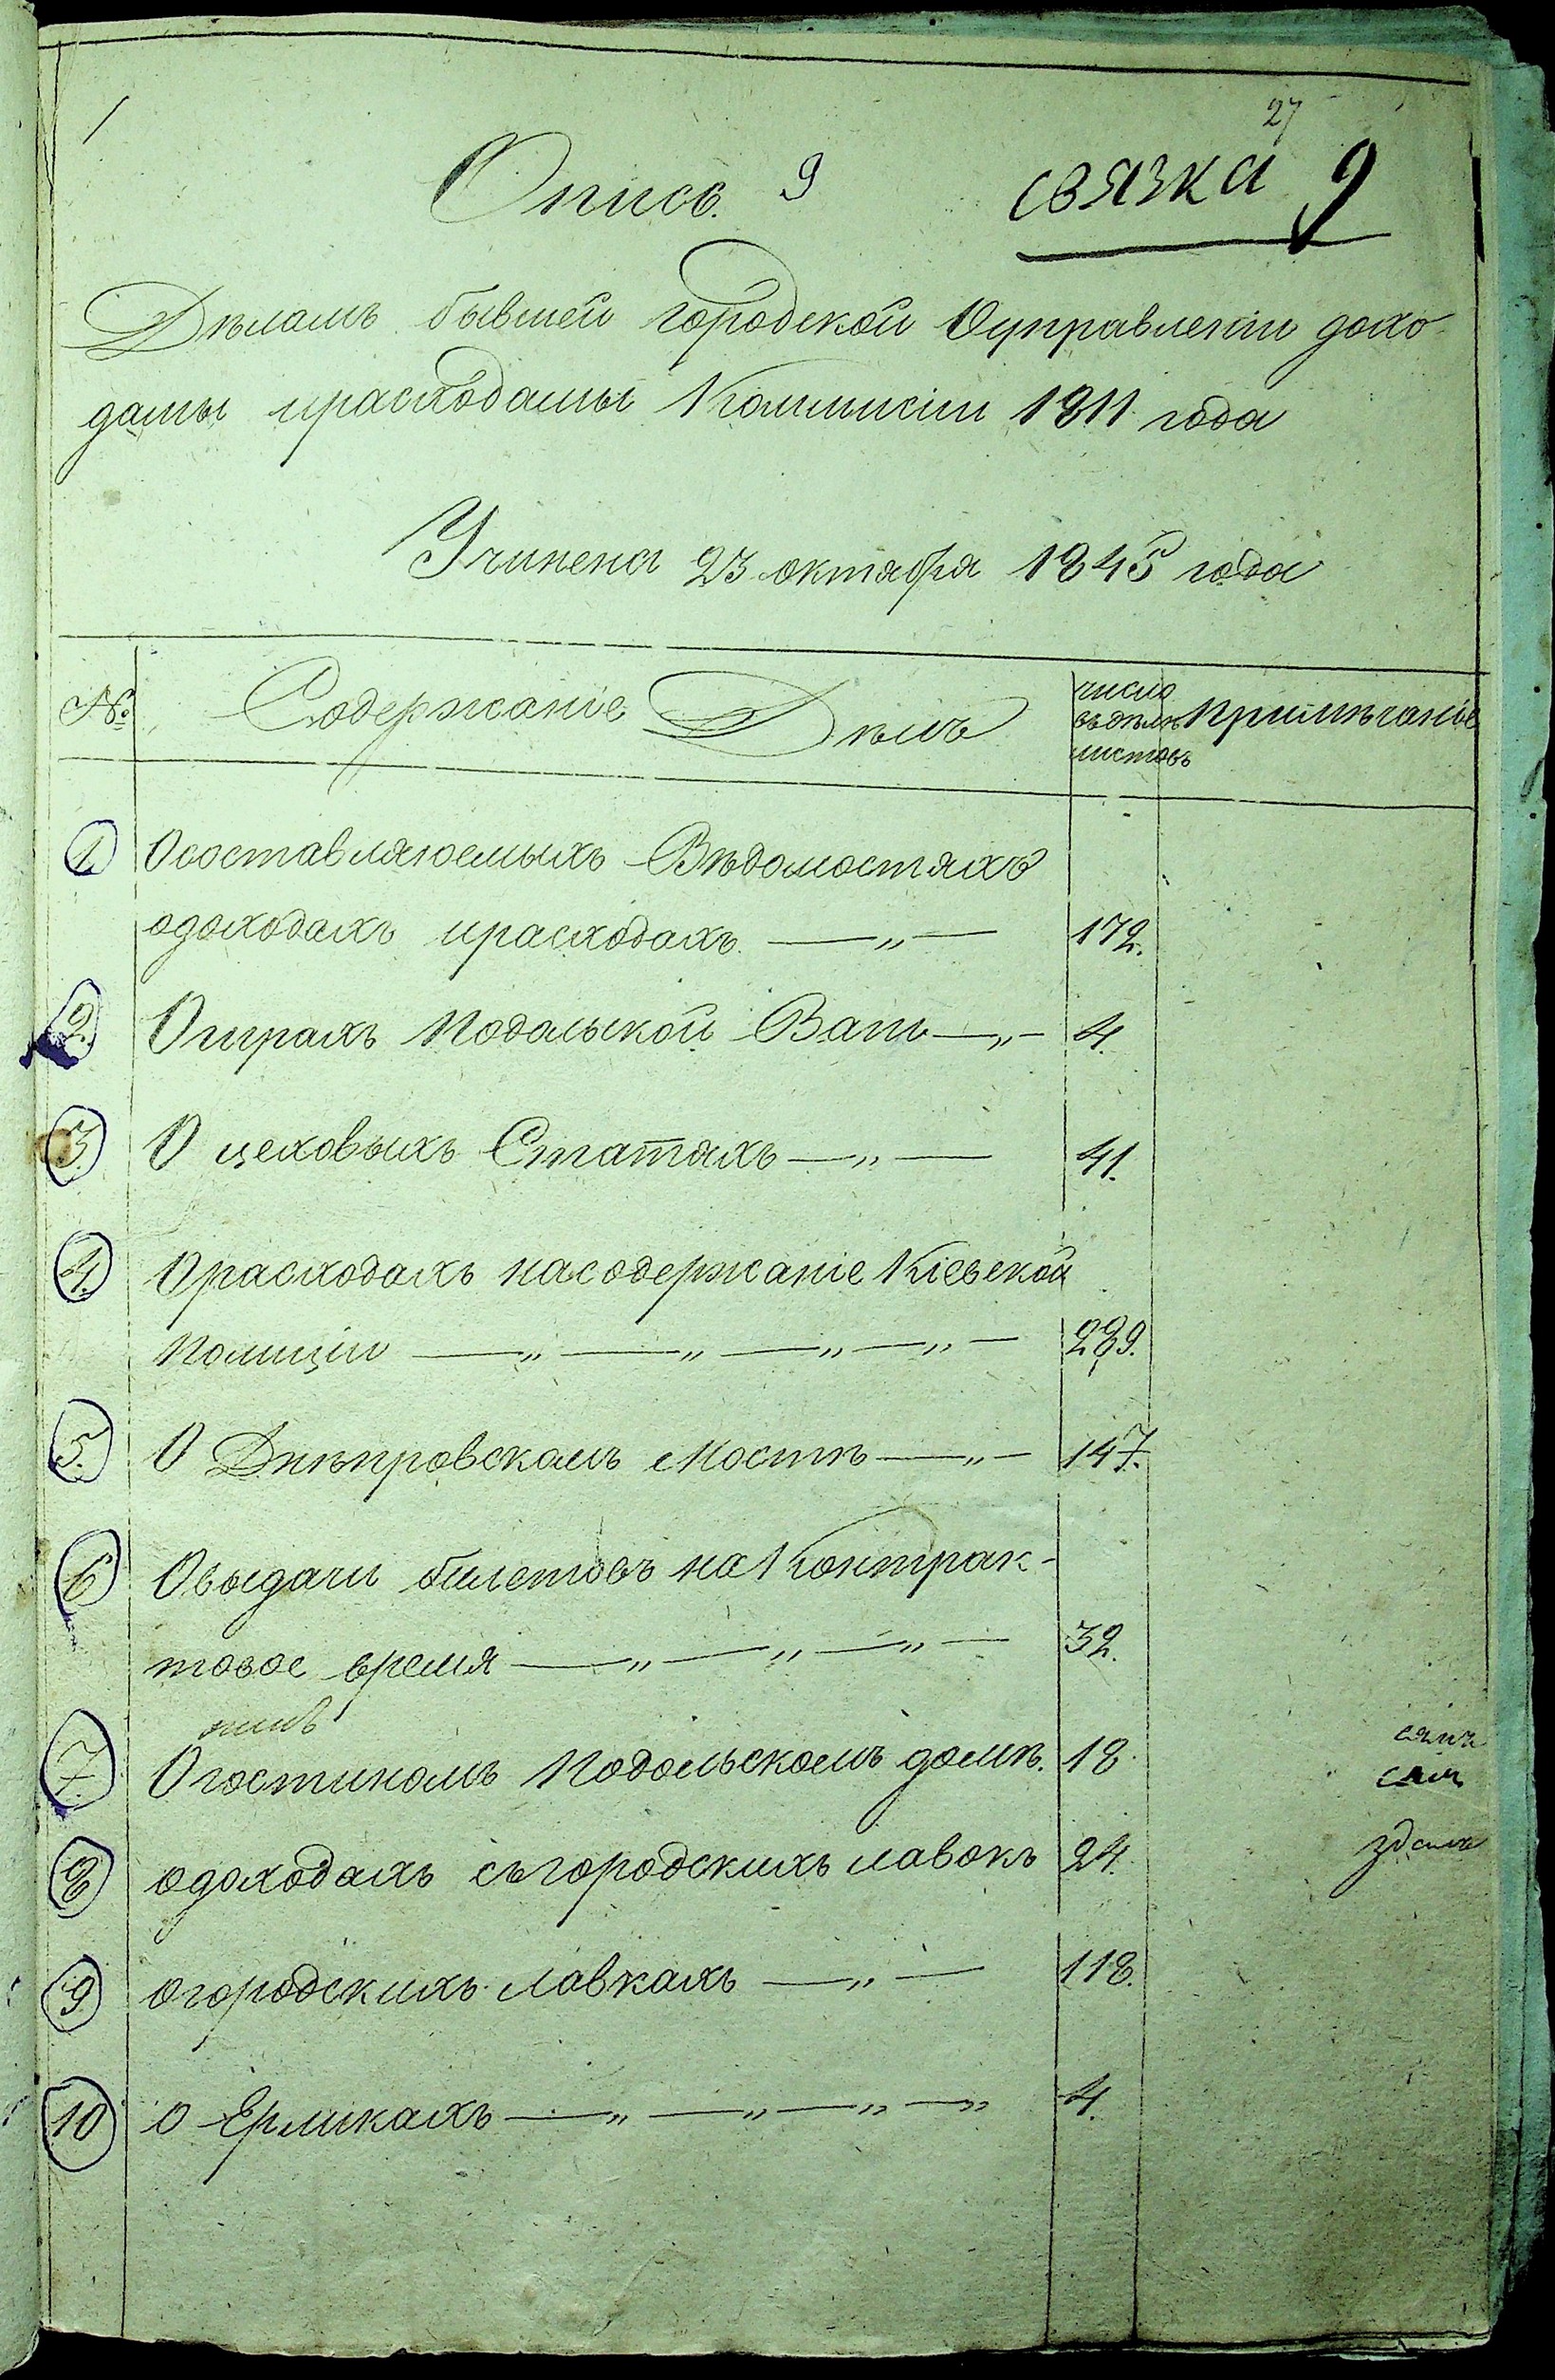 27
Опись. 9 связка 9
Дѣламъ бывшей городской Оуправленіи дохо
дамы ирасходамы Коммисіи 1811 года
Учинена 23 октября 1845 года
№ Содержаніе Дѣлъ число въдѣлѣ листовъ примѣчаніе
1. Осоставляюемыхъ Вѣдомостяхъ
одоходахъ ирасходахъ —„— 172.
2. О Подольской —„— 4.
3. О цеховыхъ Статяхъ —„— 41.
4. Орасходахъ насодержаніе Кіевской
Полиціи —„—„—„—„— 289.
5. О Днѣпровскомъ Мостѣ —„— 147.
6 Овыдачи билетовъ на Контрак-
товое время —„—„—„— 32.
7. Огостиномъ Подольскомъ домѣ. 18
8 одоходахъ съгородскихъ лавокъ 24.
9 огородскихъ лавкахъ —„— 118.
10 о Ерликахъ —„—„—„—„ 4.